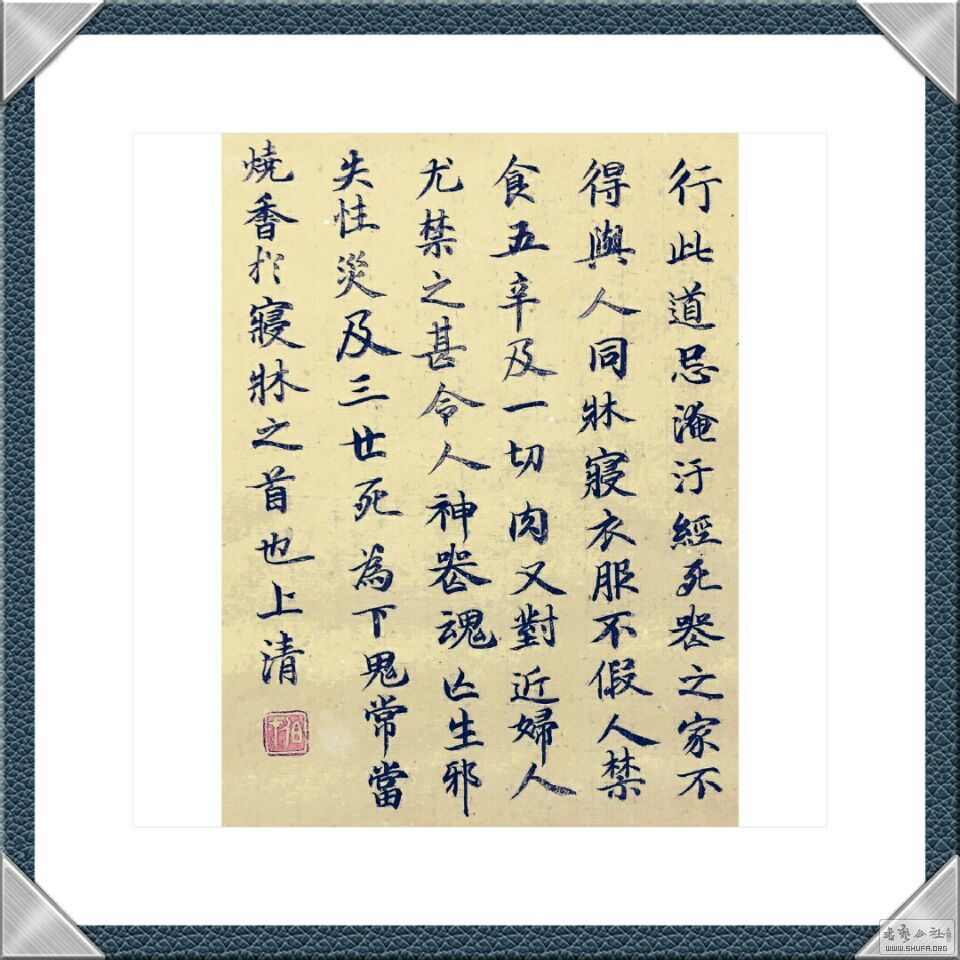 行此道忌淹汙經死喪之家不
得與人同牀寢衣服不假人禁
食五辛及一切肉又對近婦人
尤禁之甚令人神喪魂亡生邪
失性災及三世死為下鬼常當
燒香於寢牀之首也上清
書藝公社
WWW.SHUFA.ORG